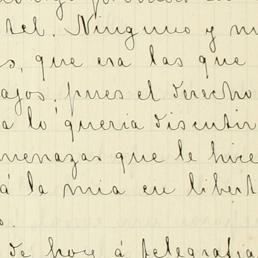 tel. Ninguno y m
s, que era las que
ajos, pues el derecho
a lo queria discutir
menazas que le hice
á la mia en libert
s.
de hoy á telegrafia